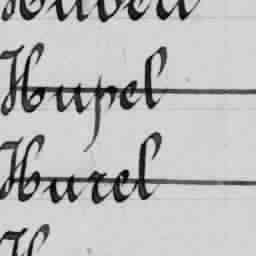 Hupel
Hurel